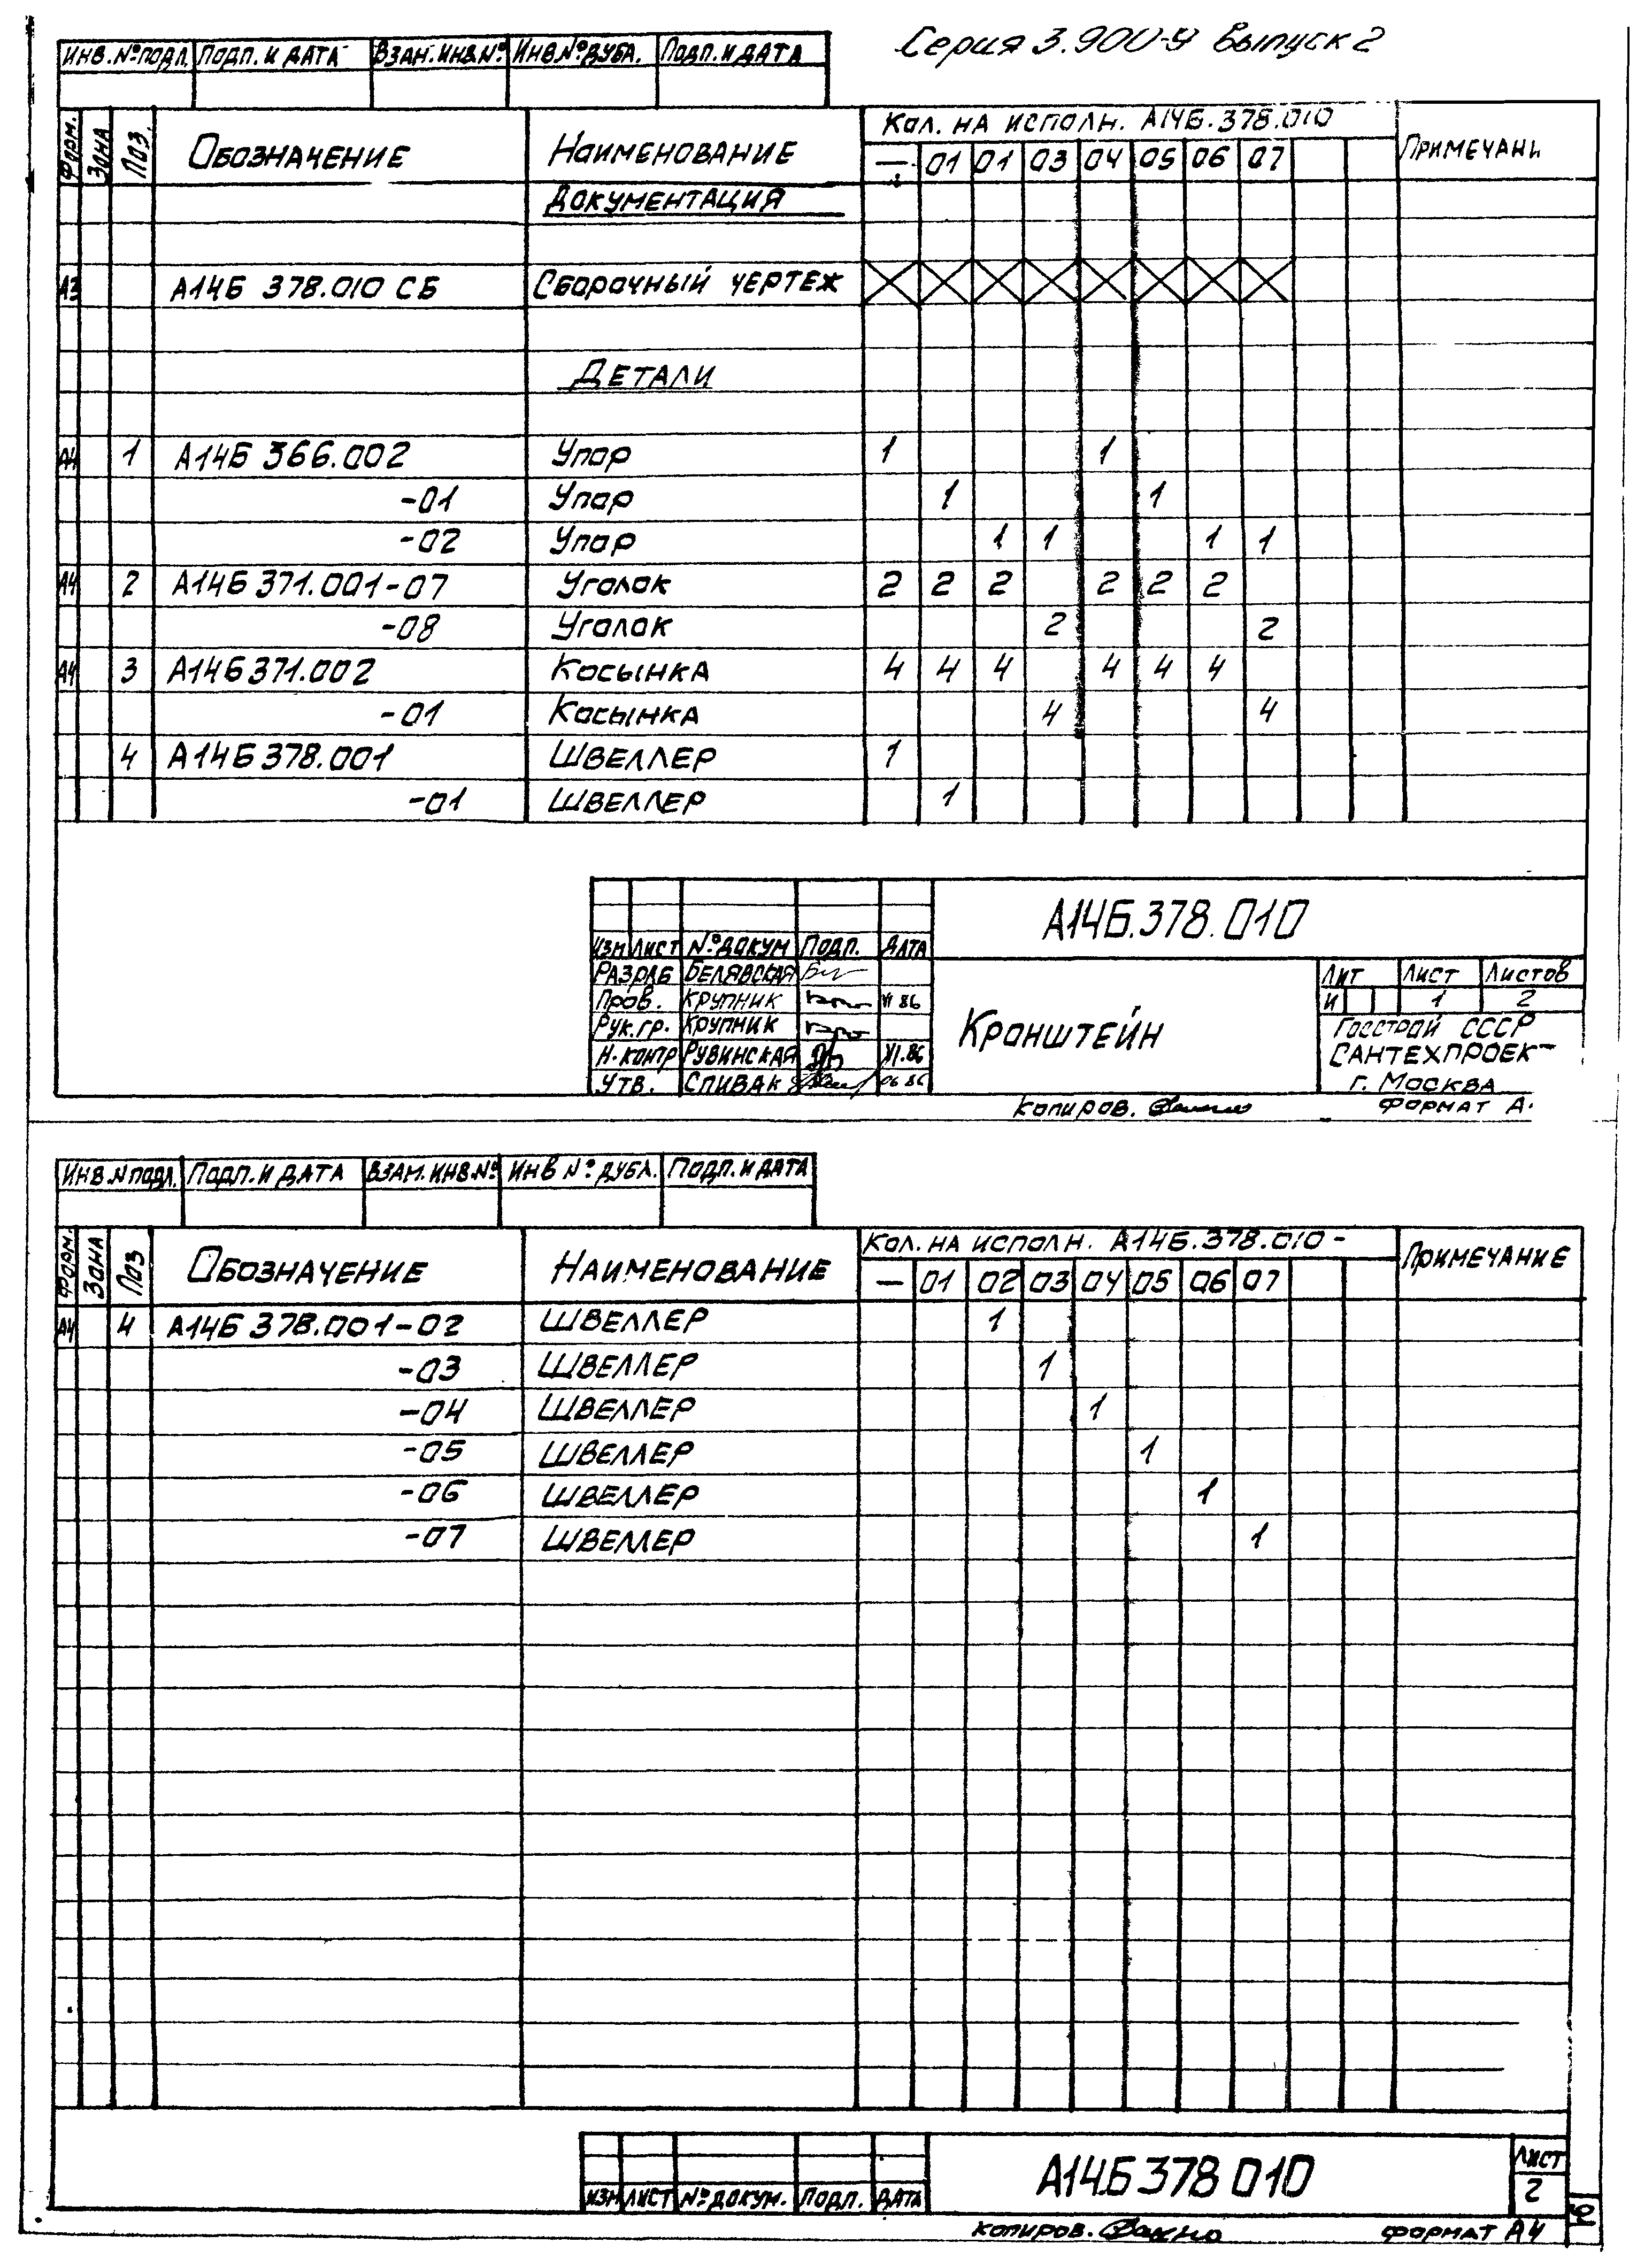 Серия 3.900-9 Выпуск 2
Инв.№подл. Подп. и дата Взам.инв.№ Инв.№дубл. Подп. и дата
Форм. Зона Поз. Обозначение Наименование Кол. на исполн. А14Б.378.010 Примечани
— 01 01 03 04 05 06 07
Документация
А3 А14Б 378.010 СБ Сборочный чертеж
Детали
А4 1 А14Б 366.002 Упор 1 1
-01 Упор 1 1
-02 Упор 1 1 1 1
А4 2 А14Б 371.001-07 Уголок 2 2 2 2 2 2
-08 Уголок 2 2
А4 3 А14Б371.002 Косынка 4 4 4 4 4 4
-01 Косынка 4 4
4 А14Б378.001 Швеллер 1
-01 Швеллер 1
А14Б.378.010
Изм Лист №докум Подп. Дата
Разраб Белявская
Пров. Крупник VI 86
Рук.гр. Крупник
Н.контр Рувинская VI.86
Утв. Спивак 06 86
Кронштейн
Лит Лист Листов
И 1 2
Госстрой СССР
Сантехпроек
г. Москва
Копиров. Формат А
Инв.№подл. Подп. и дата Взам.инв.№ Инв №дубл. Подп. и дата
Форм. Зона Поз Обозначение Наименование Кол. на исполн. А14Б.378.010- Примечание
— 01 02 03 04 05 06 07
А4 4 А14Б 378.001-02 Швеллер 1
-03 Швеллер 1
-04 Швеллер 1
-05 Швеллер 1
-06 Швеллер 1
-07 Швеллер 1
А14Б378 010
Лист
2
Изм Лист №докум. Подп. Дата
Копиров. Формат А4